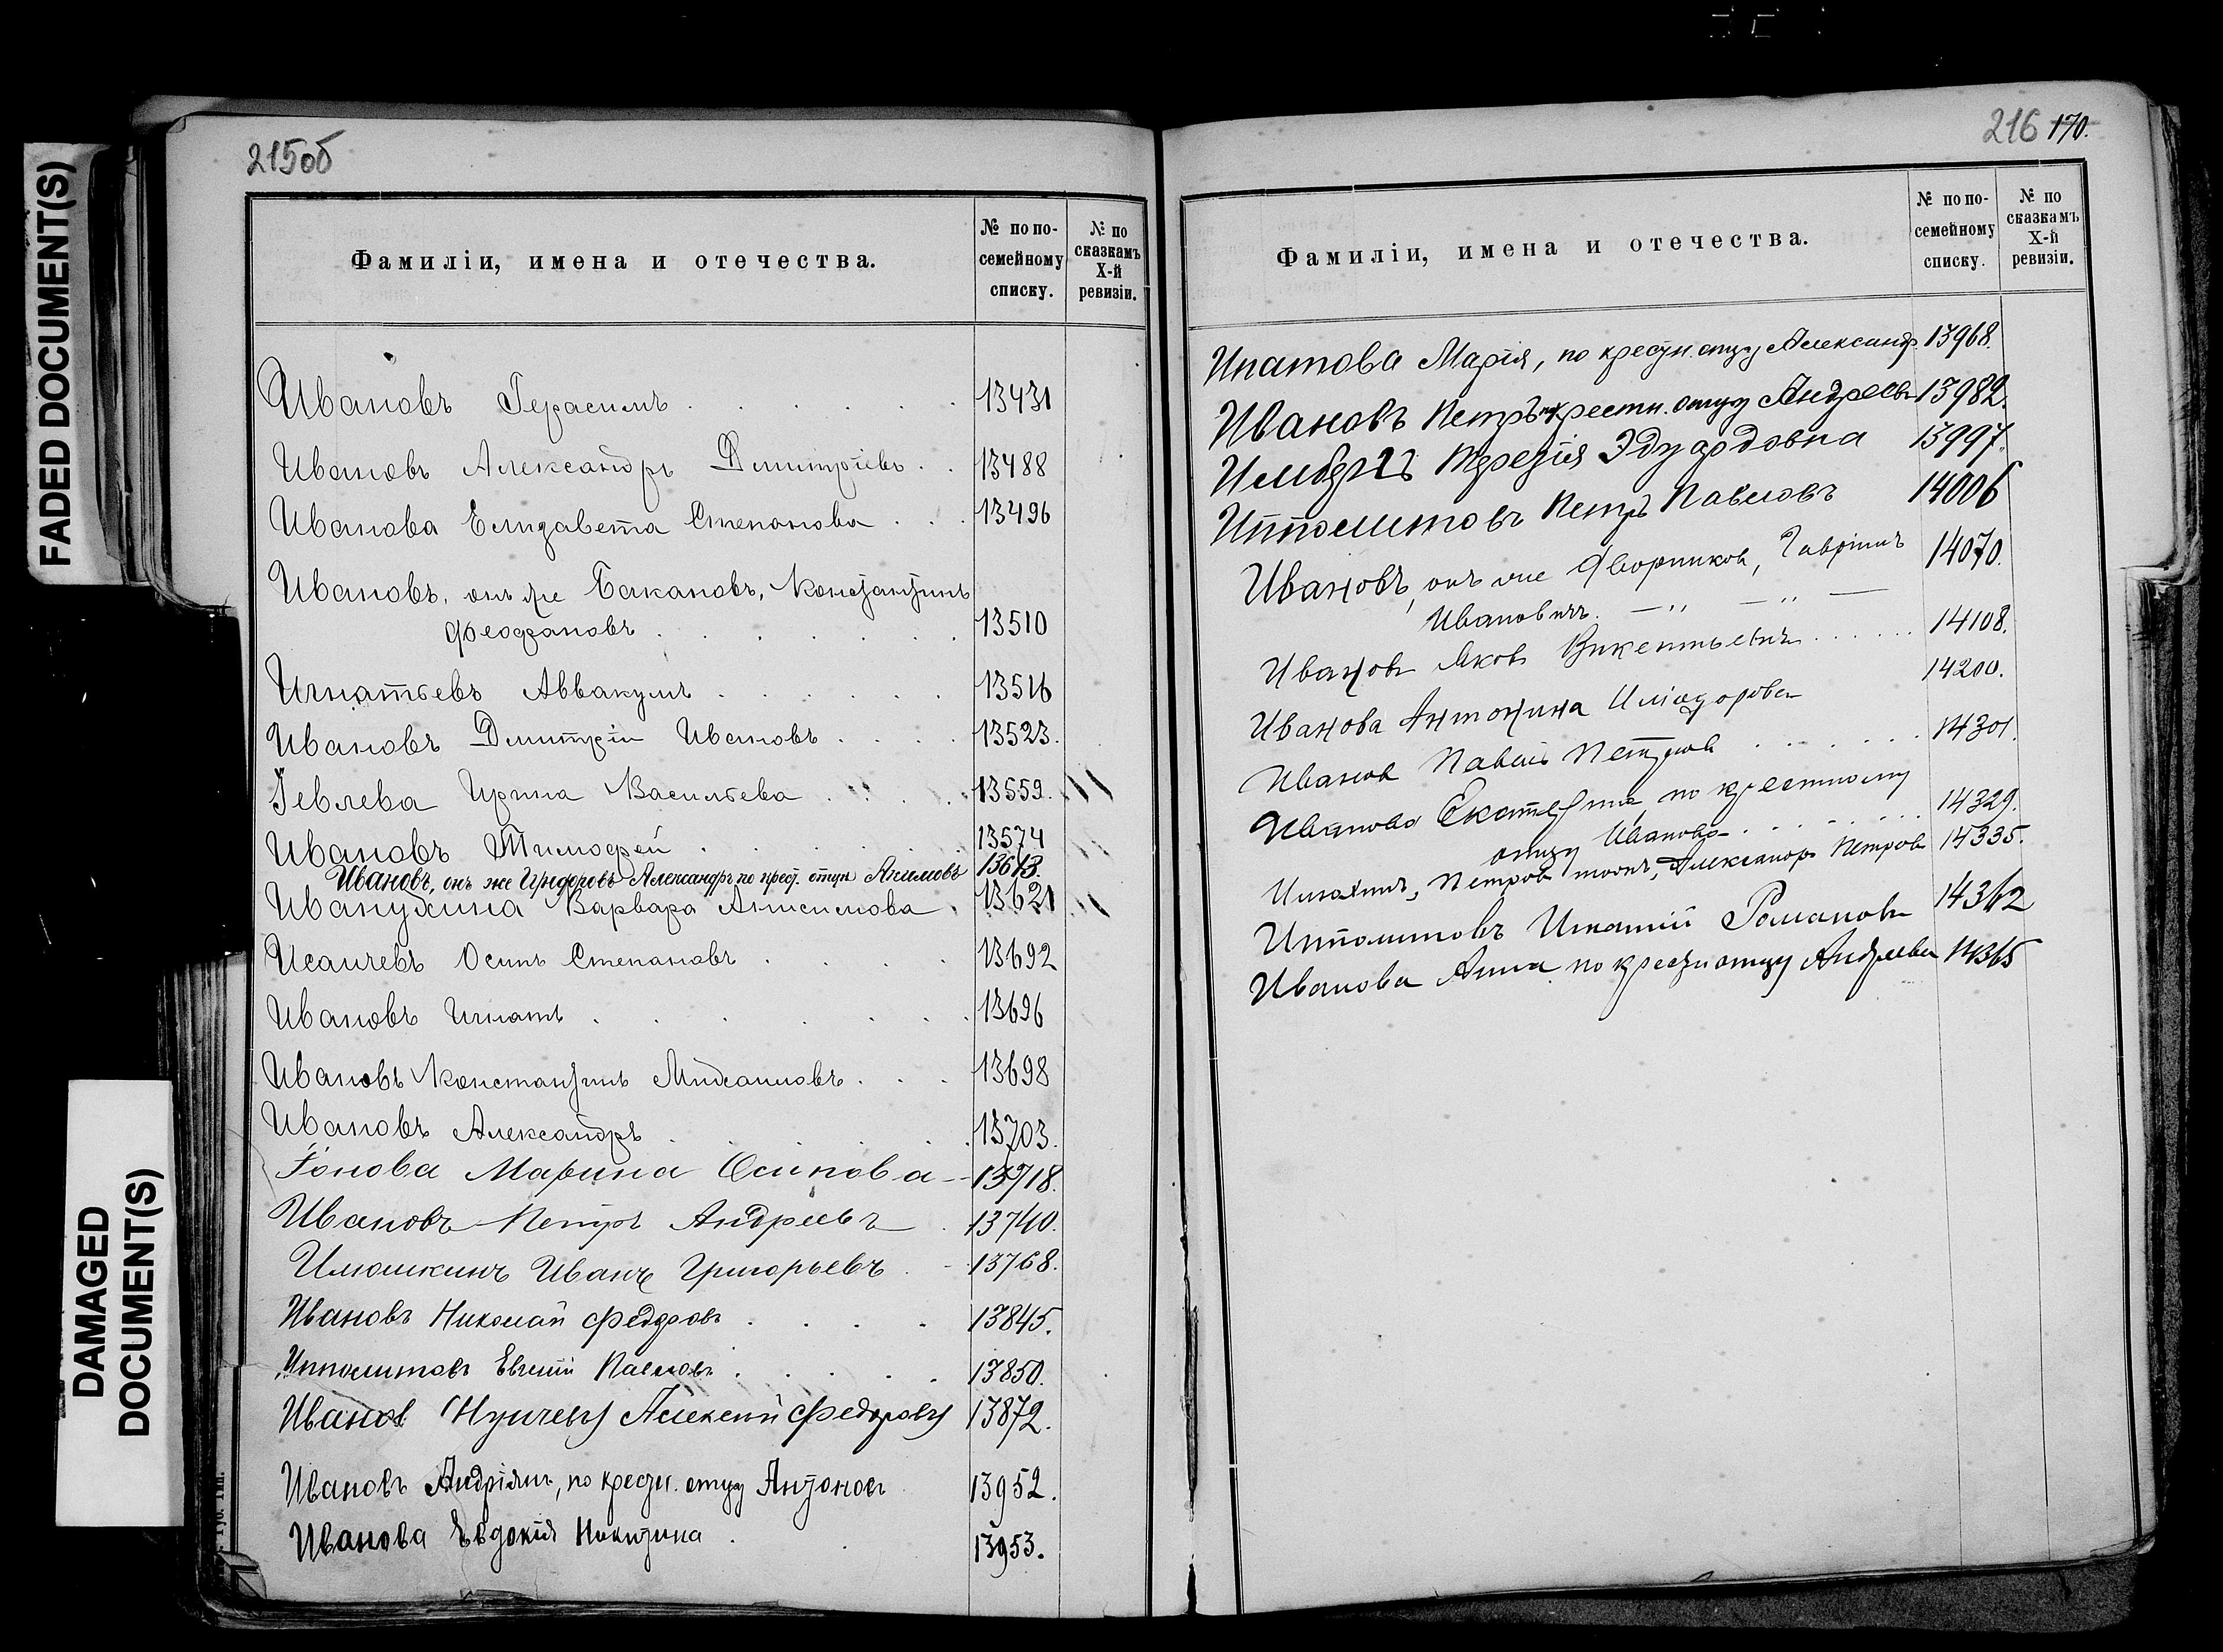 FADED DOCUMENT(S)
DAMAGED
DOCUMENT(S)
215об
Фамиліи, имена и отечества.
№ по по-
семейному
списку.
№ по
сказкамъ
X-й
ревизіи.
Ивановъ Герасимъ 13431
Ивановъ Александръ Дмитріевъ 13488
Иванова Елизавета Степанова 13496
Ивановъ, онъ же Бакановъ, Константинъ
13510
Игнатьевъ Аввакумъ 13516
Ивановъ Дмитрій Ивановъ 13523.
Іевлева Ирина Васильева 13559.
Ивановъ Тимофей 13574
Ивановъ, онъ же Александръ по крест. отцу Акимовъ 13613.
Иванухина Варвара Анисимова 13621
Исаичевъ Осипъ Степановъ 13692
Ивановъ Игнатъ 13696
Ивановъ Константинъ Михаиловъ 13698
Ивановъ Александръ 13703.
Іонова Марина Осипова 13718.
Ивановъ Петръ Андреевъ 13740.
Илюшкинъ Иванъ Григорьевъ 13768.
Ивановъ Николай Федоровъ 13845.
Ипполитовъ Евгеній Павловъ 13850.
Иванов Алексей Федоровъ 13872.
Ивановъ Андріянъ, по крестн. отцу Антоновъ 13952.
Иванова Евдокія Никитина 13953.
216 170.
Фамиліи, имена и отечества.
№ по по-
семейному
списку.
№ по
сказкамъ
X-й
ревизіи.
Ипатова Марія, по крестн. отцу Александр. 13968.
Ивановъ Петръ по крестн. отцу Андреевъ 13982.
Терезія Эдуардовна 13997.
Ипполитовъ Петръ Павловъ 14006
Ивановъ, онъ же Дворников, Гавріилъ 14070.
Ивановичъ
Иванов Яков Викентьевичъ 14108.
Иванова Антонина Иліодорова 14200.
Иванов Павелъ Петров 14301.
Иванова Екатерина, по крестному
отцу Иванова 14329.
Петров тожъ, Александр Петров 14335.
Ипполитовъ Игнатій Романовъ 14362
Иванова Анна по крестн отцу Андреева 14365